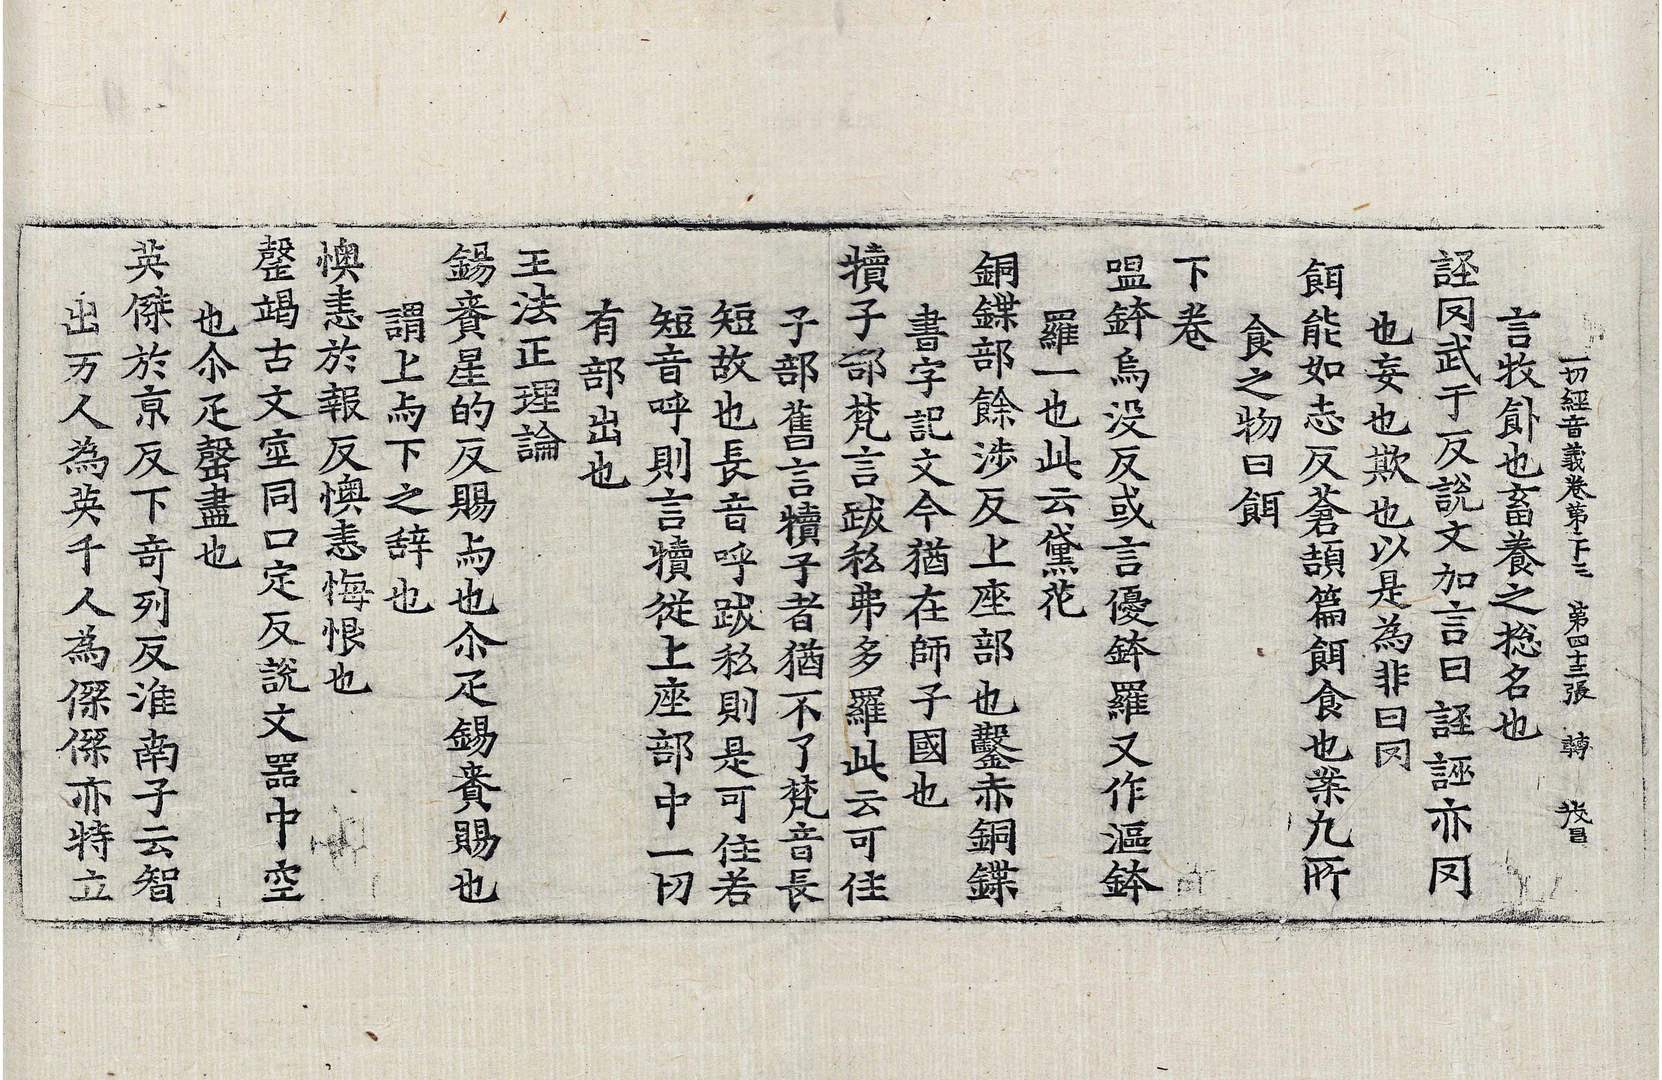 一切經音義卷第二十三 第四十三張 轉
言牧飤也畜養之捴名也
誣罔武于反說文加言曰誣誣亦罔
也妄也欺也以是為非曰罔
餌能如志反蒼頡篇餌食也案九所
食之物曰餌
下卷
嗢鉢烏没反或言優鉢羅又作漚鉢
羅一也此云黛花
銅鍱部餘涉反上座部也鑿赤銅鍱
書字記文今猶在師子國也
犢子部梵言跋私弗多羅此云可住
子部舊言犢子者猶不了梵音長
短故也長音呼跋私則是可住若
短音呼則言犢從上座部中一切
有部出也
王法正理論
錫賚星的反賜与也尒疋錫賚賜也
謂上与下之辞也
懊恚於報反懊恚悔恨也
罄竭古文窒同口定反說文器中空
也尒疋罄盡也
英傑於京反下竒列反淮南子云智
出万人為英千人為傑傑亦特立